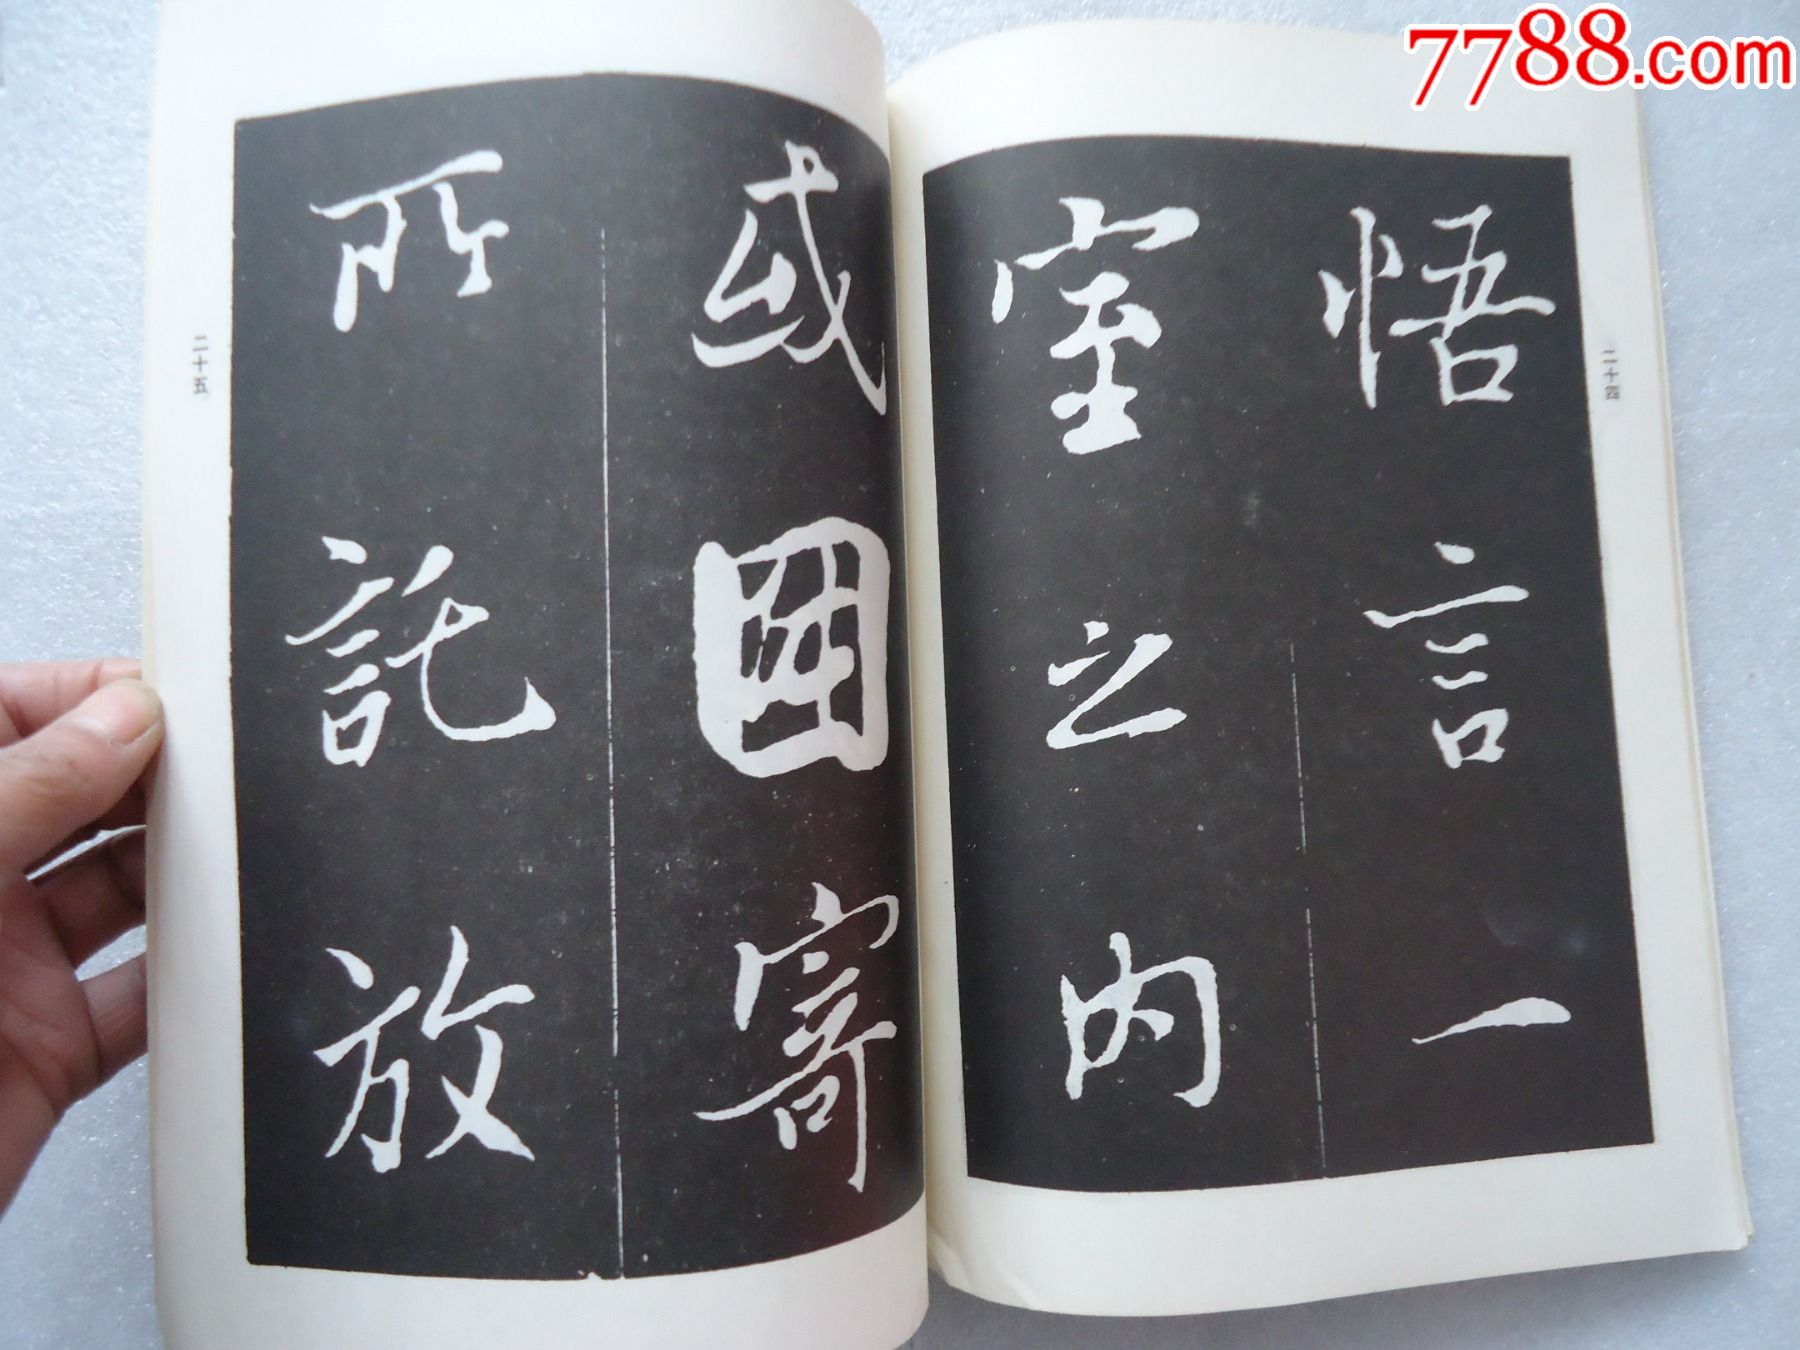 7788.com
悟言一
室之内
二十四
或因寄
所託放
二十五